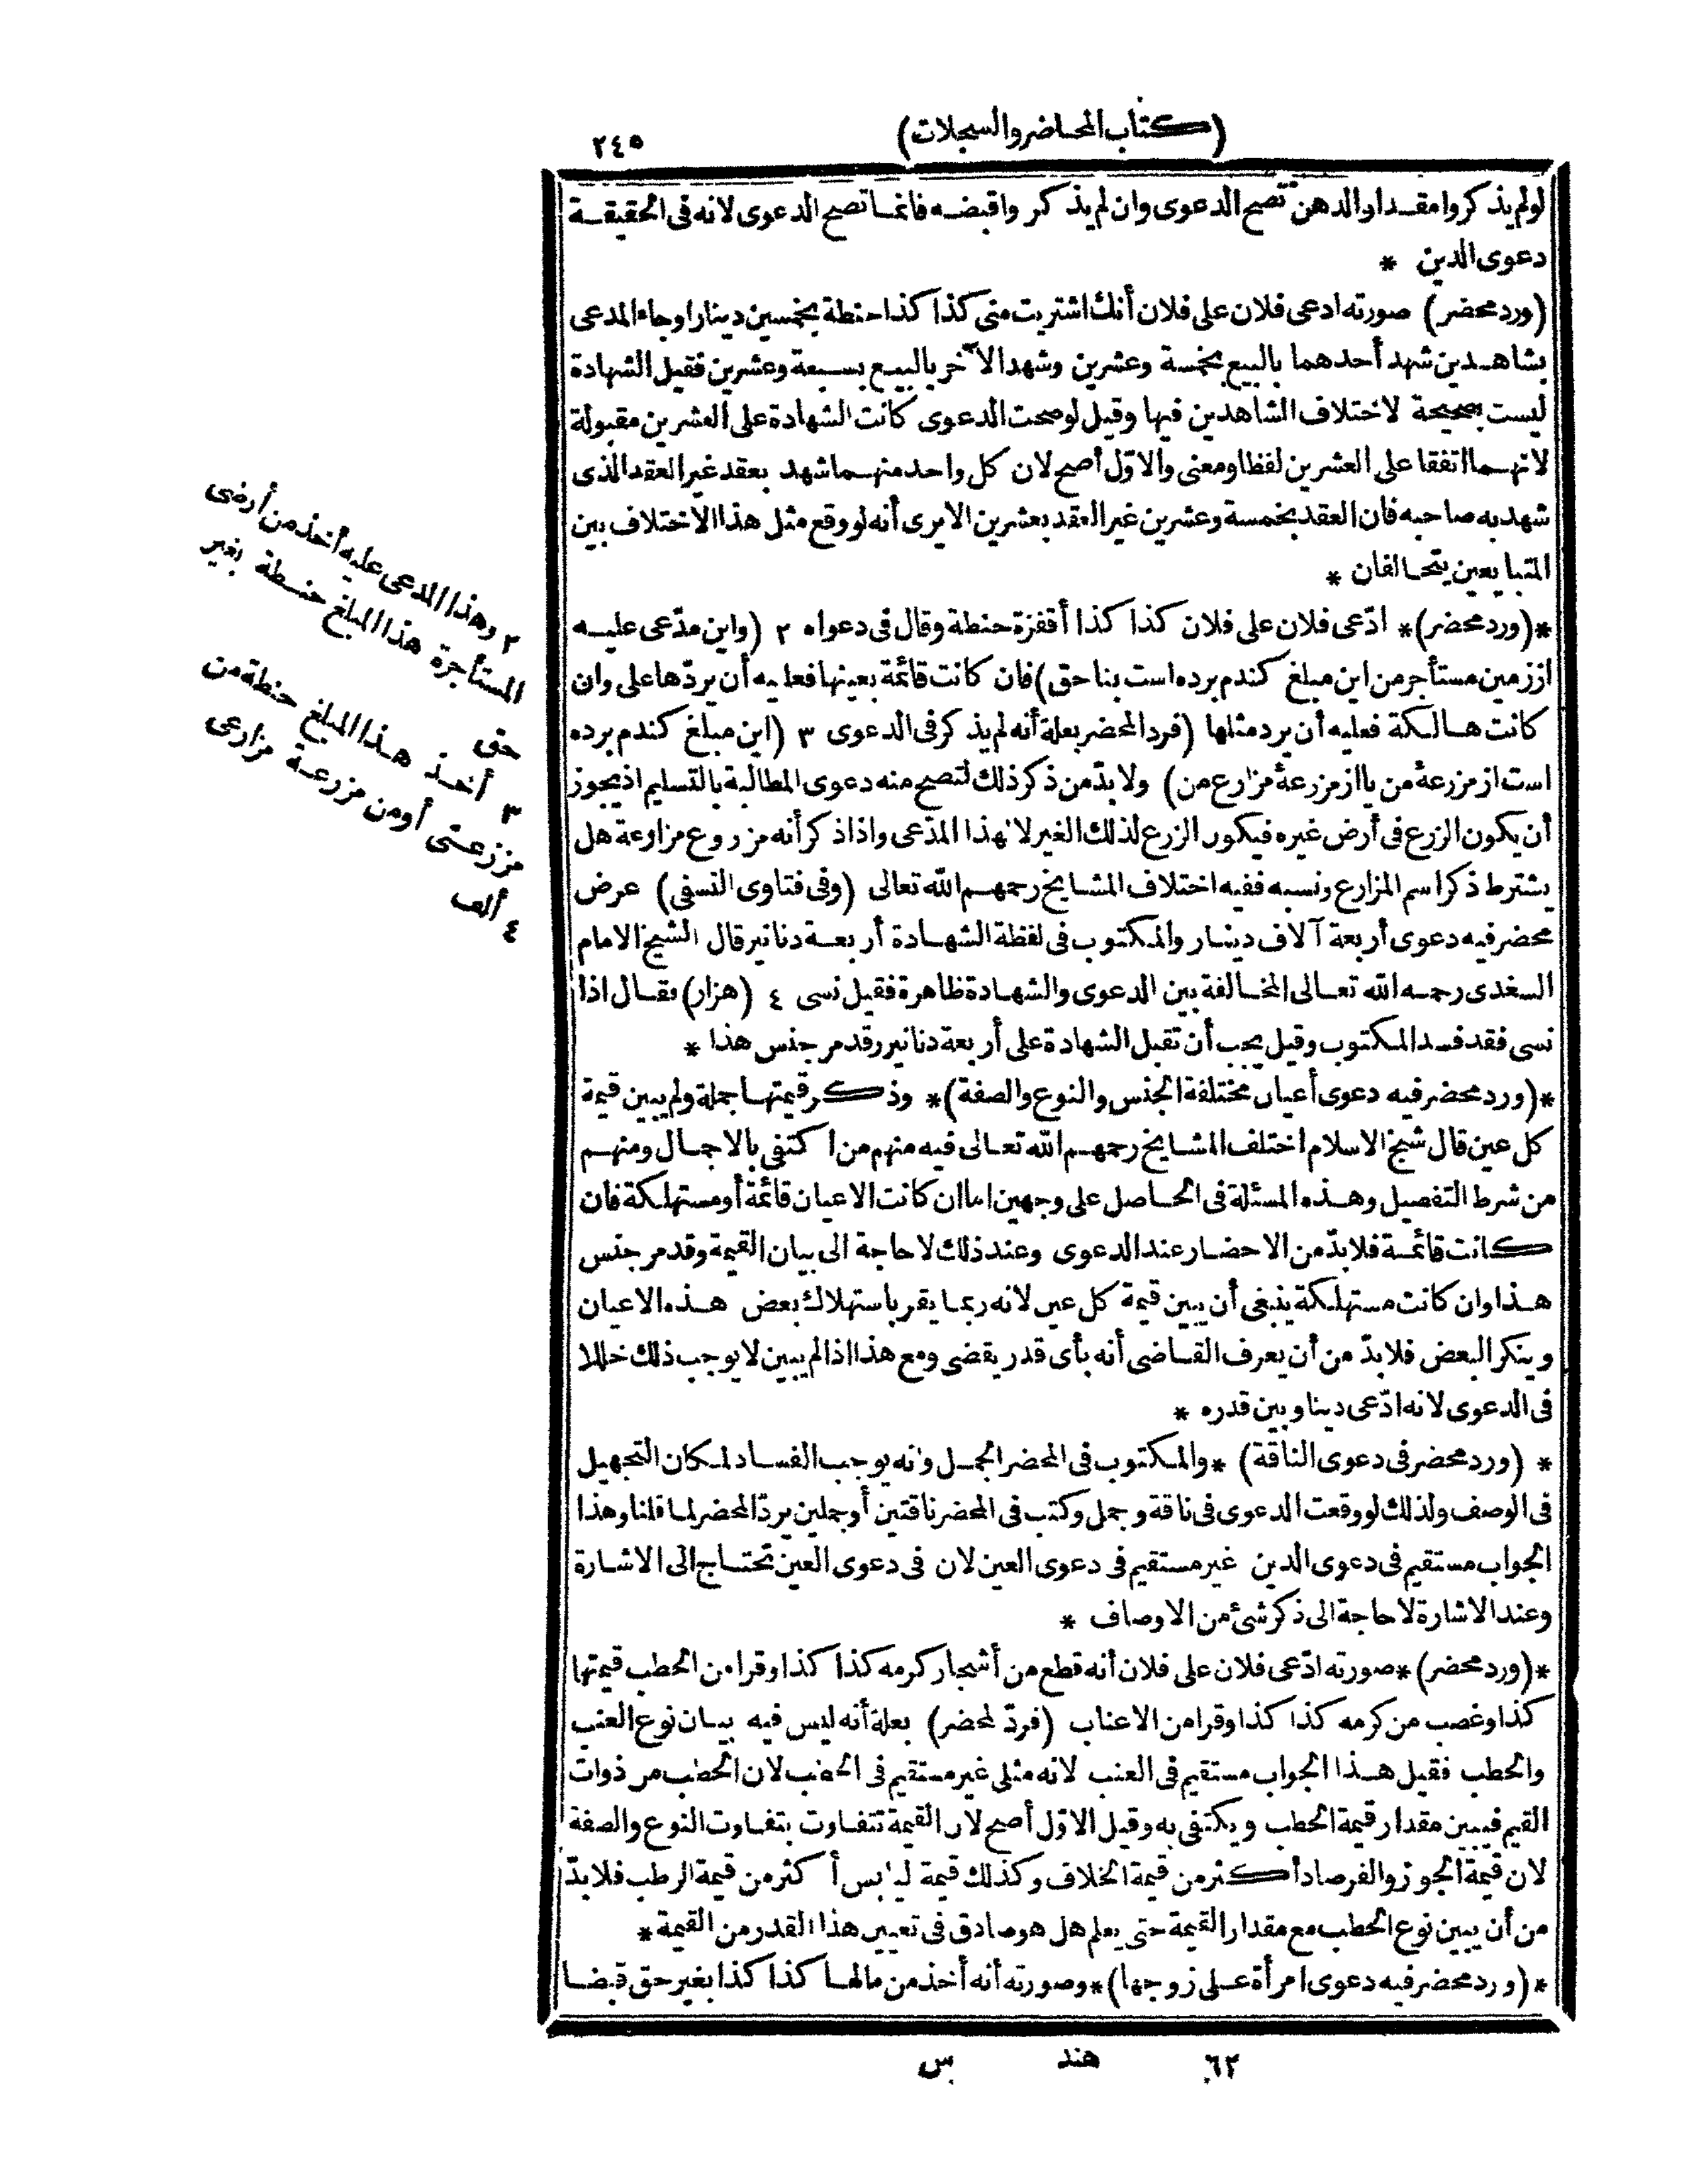 (كتاب المحاضر والسجلات)
٢٤٥
لو لم يذكروا مقدار الدهن تصح الدعوى وان لم يذكر واقبضه فانما تصح الدعوى لانه فى الحقيقة
دعوى الدين *
(ورد محضر) صورته ادعى فلان على فلان أنك اشتريت منى كذا كذا حنطة بخمسين دينارا وجاء المدعى
بشاهدين شهد أحدهما بالبيع بخمسة وعشرين وشهد الآخر بالبيع بسبعة وعشرين فقيل الشهادة
ليست بصحيحة لاختلاف الشاهدين فيها وقيل لو صحت الدعوى كانت الشهادة على العشرين مقبولة
لانهما اتفقا على العشرين لفظا ومعنى والاوّل أصح لان كل واحد منهما شهد بعقد غير العقد الذى
شهد به صاحبه فان العقد بخمسة وعشرين غير العقد بعشرين الا يرى أنه لو وقع مثل هذا الاختلاف بين
المتبايعين يتحالفان *
*(ورد محضر)* ادّعى فلان على فلان كذا كذا أقفزة حنطة وقال فى دعواه ٢ (واين مدّعى عليه
اززمين مستأجر من اين مبلغ كندم برده است بنا حق) فان كانت قائمة بعينها فعليه أن يردّها على وان
كانت هالكة فعليه أن يرد مثلها (فرد المحضر بعلة أنه لم يذكر فى الدعوى ٣ (اين مبلغ كندم برده
است از مزرعۀ من يا از مزرعۀ مزارع من) ولا بدّ من ذكر ذلك لتصح منه دعوى المطالبة بالتسليم اذ يجوز
أن يكون الزرع فى أرض غيره فيكون الزرع لذلك الغير لا لهذا المدّعى واذا ذكر أنه مزروع مزارعة هل
يشترط ذكر اسم المزارع ونسبه ففيه اختلاف المشايخ رحمهم الله تعالى (وفى فتاوى النسفى) عرض
محضر فيه دعوى أربعة آلاف دينار والمكتوب فى لفظة الشهادة أربعة دنانير قال الشيخ الامام
السغدى رحمه الله تعالى المخالفة بين الدعوى والشهادة ظاهرة فقيل نسى ٤ (هزار) فقال اذا
نسى فقد فسد المكتوب وقيل يجب أن تقبل الشهادة على أربعة دنانير وقد مر جنس هذا *
*(ورد محضر فيه دعوى أعيان مختلفة الجنس والنوع والصفة)* وذكر قيمتها جملة ولم يبين قيمة
كل عين قال شيخ الاسلام اختلف المشايخ رحمهم الله تعالى فيه منهم من اكتفى بالاجمال ومنهم
من شرط التفصيل وهذه المسئلة فى الحاصل على وجهين اما ان كانت الاعيان قائمة أو مستهلكة فان
كانت قائمة فلا بدّ من الاحضار عند الدعوى وعند ذلك لا حاجة الى بيان القيمة وقد مر جنس
هذا وان كانت مستهلكة ينبغى أن يبين قيمة كل عين لانه ربما يقر باستهلاك بعض هذه الاعيان
وينكر البعض فلا بدّ من أن يعرف القاضى أنه بأى قدر يقضى ومع هذا اذا لم يبين لا يوجب ذلك خللا
فى الدعوى لانه ادّعى دينا وبين قدره *
* (ورد محضر فى دعوى الناقة) * والمكتوب فى المحضر الجمل وانه يوجب الفساد لمكان التجهيل
فى الوصف ولذلك لو وقعت الدعوى فى ناقة وجمل وكتب فى المحضر ناقتين أو جملين يردّ المحضر لما قلنا وهذا
الجواب مستقيم فى دعوى الدين غير مستقيم فى دعوى العين لان فى دعوى العين تحتاج الى الاشارة
وعند الاشارة لا حاجة الى ذكر شئ من الاوصاف *
*(ورد محضر)* صورته ادّعى فلان على فلان أنه قطع من أشجار كرمه كذا كذا وقرا من الحطب قيمتها
كذا وغصب من كرمه كذا كذا وقرا من الاعناب (فردّ المحضر) بعلة أنه ليس فيه بيان نوع العنب
والحطب فقيل هذا الجواب مستقيم فى العنب لانه مثلى غير مستقيم فى الحطب لان الحطب من ذوات
القيم فيبين مقدار قيمة الحطب ويكتفى به وقيل الاوّل أصح لان القيمة تتفاوت بتفاوت النوع والصفة
لان قيمة الجوز والفرصاد أكثر من قيمة الخلاف وكذلك قيمة اليابس أكثر من قيمة الرطب فلا بدّ
من أن يبين نوع الحطب مع مقدار القيمة حتى يعلم هل هو صادق فى تعيين هذا القدر من القيمة *
*(ورد محضر فيه دعوى امرأة على زوجها)* وصورته أنه أخذ من مالها كذا كذا بغير حق قبضا
٢ وهذا المدعى عليه أخذ من أرضى
المستأجرة هذا المبلغ حنطة بغير
حق
٣ أخذ هذا المبلغ حنطة من
مزرعتى أو من مزرعة مزارعى
٤ ألف
٦٢ هند س